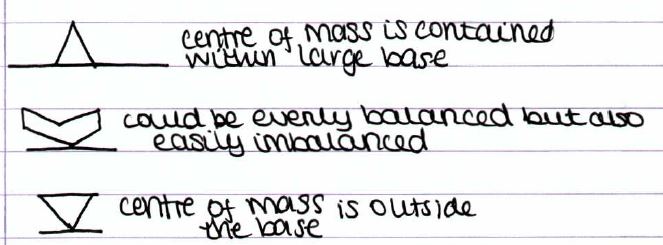 centre of mass is contained
within large base
could be evenly balanced but also
easily imbalanced
centre of mass is outside
the base